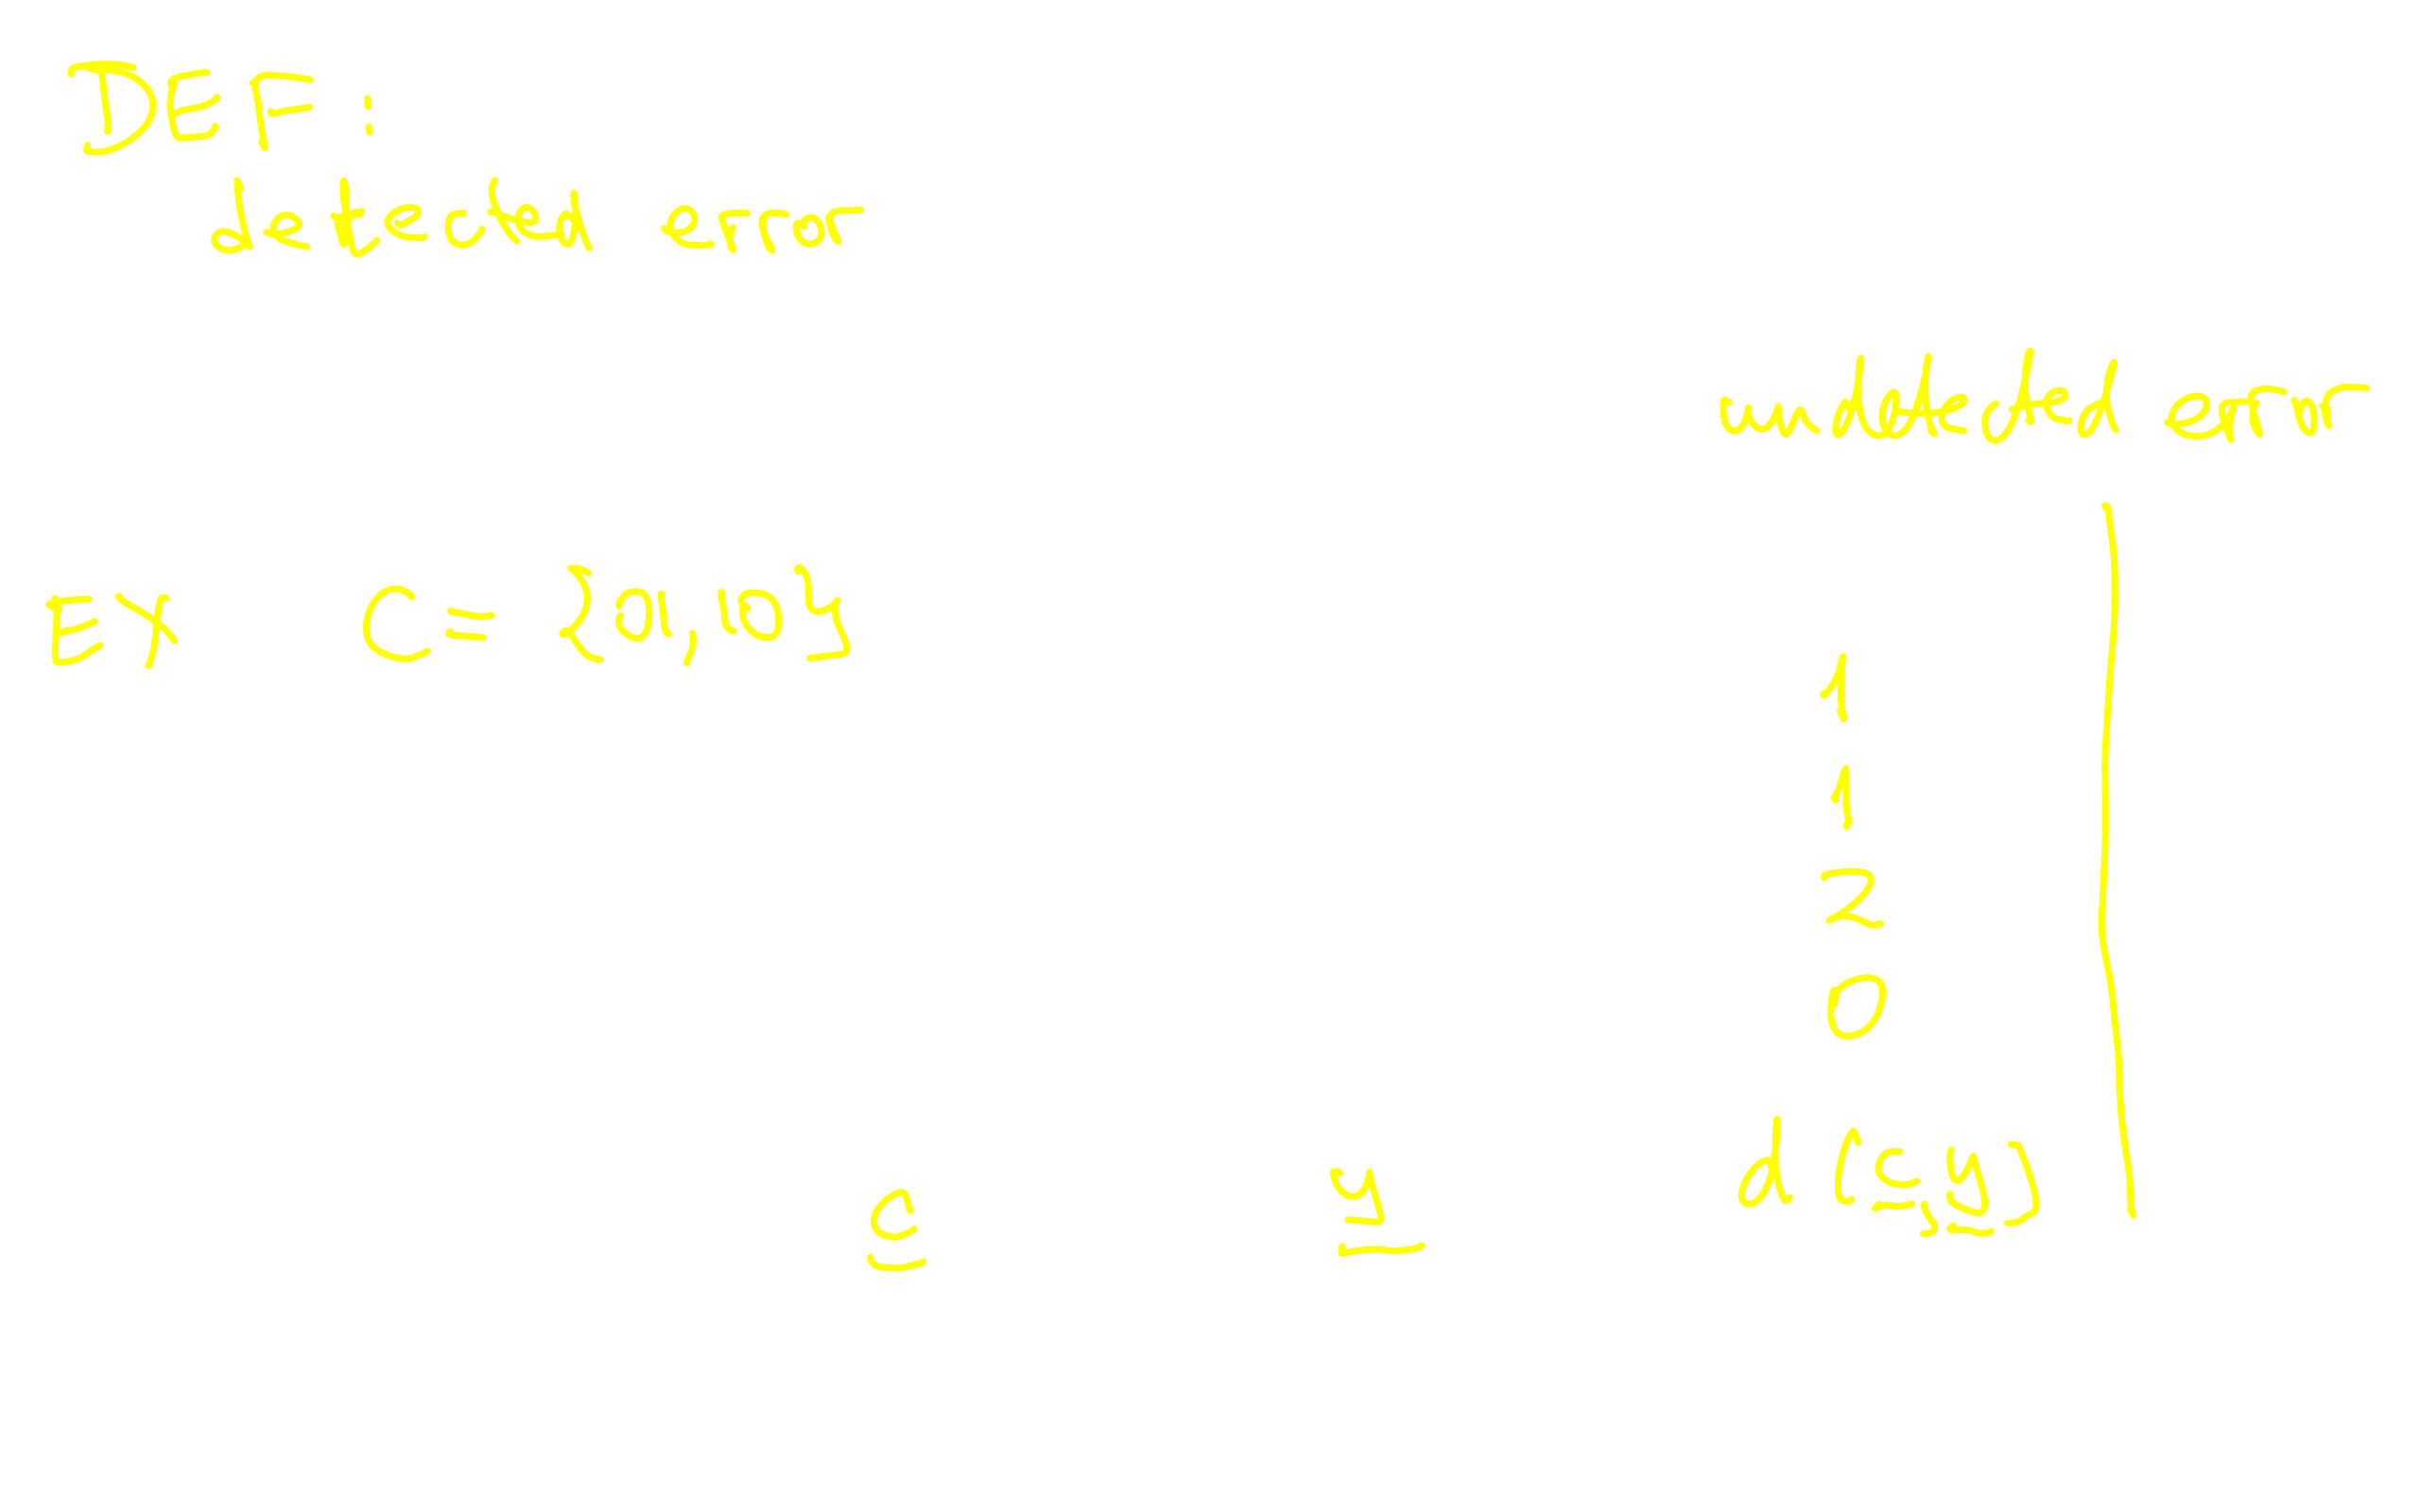 DEF:
detected error
undetected error
EX C = {01,10}
1
1
2
0
c y d(c,y)